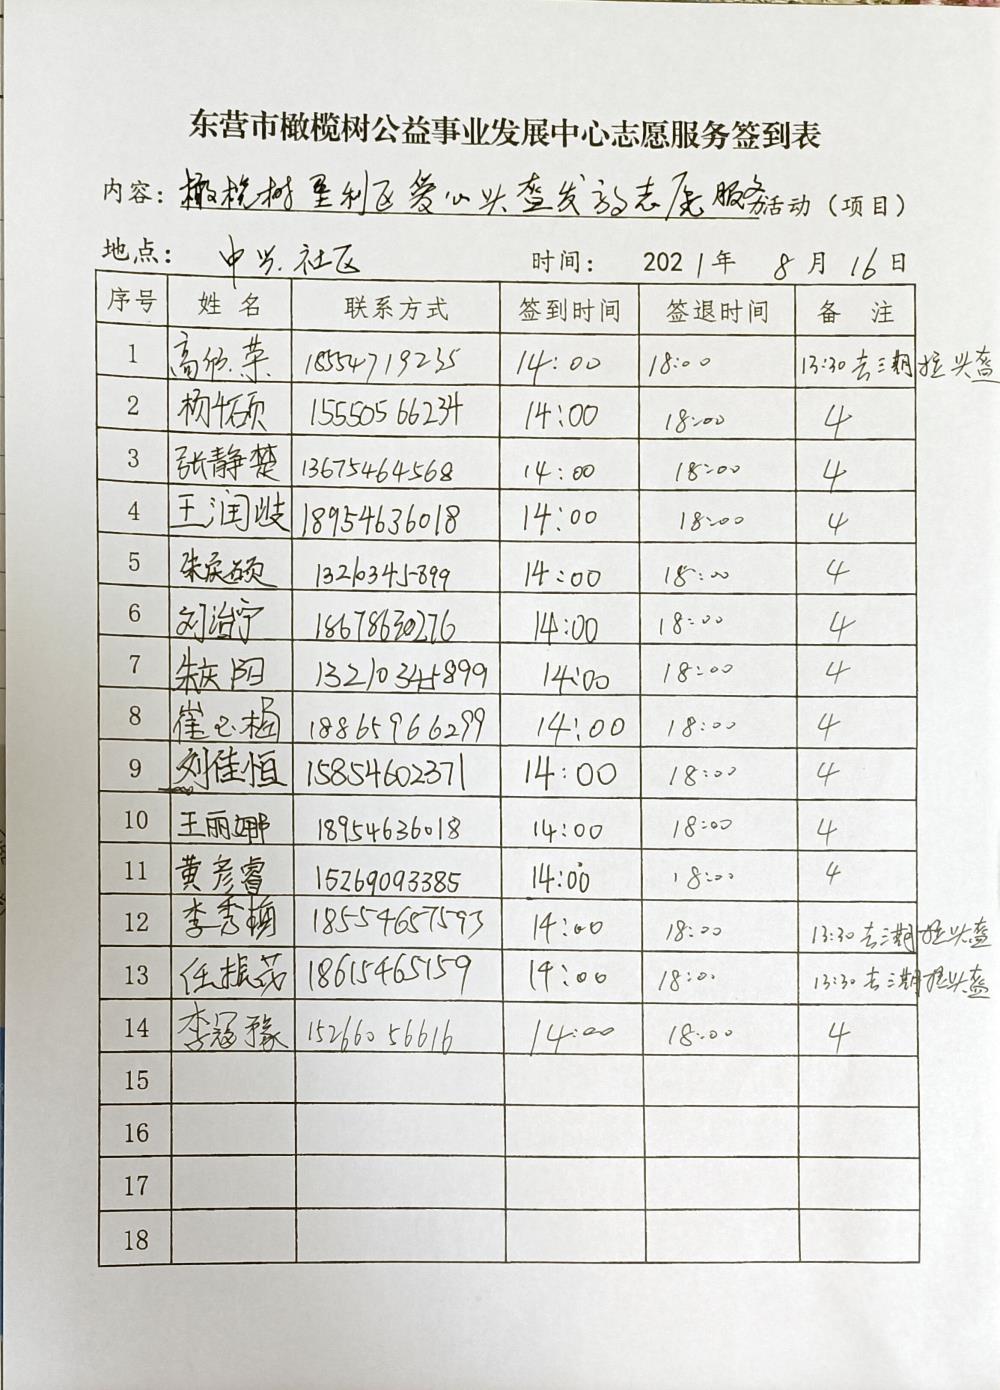 东营市橄榄树公益事业发展中心志愿服务签到表
内容：橄榄树垦利区爱心头盔发放志愿服务活动（项目）
地点：中兴社区 时间：2021年 8月16日
序号 姓名 联系方式 签到时间 签退时间 备注
1 高欣荣 18554719235 14:00 18:00 13:30去三期拉头盔
2 杨千硕 15550566234 14:00 18:00 4
3 张静楚 13675464568 14:00 18:00 4
4 王润歧 18954636018 14:00 18:00 4
5 朱庆硕 13210345899 14:00 18:00 4
6 刘治宇 18678630276 14:00 18:00 4
7 朱庆阳 13210345899 14:00 18:00 4
8 崔玉梅 18865966299 14:00 18:00 4
9 刘佳恒 15854602371 14:00 18:00 4
10 王丽娜 18954636018 14:00 18:00 4
11 黄彦睿 15269093385 14:00 18:00 4
12 李秀梅 18554657593 14:00 18:00 13:30去三期拉头盔
13 任振茂 18615465159 14:00 18:00 13:30去三期拉头盔
14 李冠豫 15266056616 14:00 18:00 4
15
16
17
18